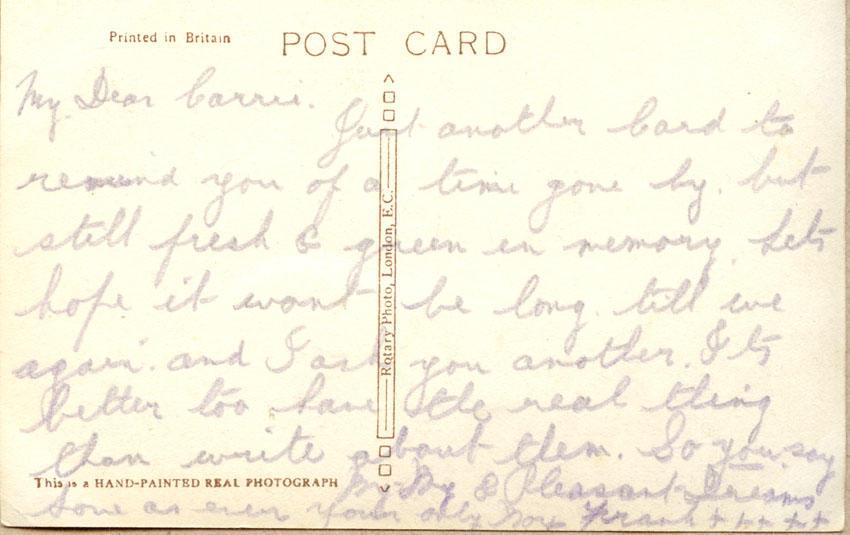 Printed in Britain
POST CARD
My Dear Carrie.
Just another Card to
remind you of a time gone by. but
still fresh & green in memory. Lets
hope it wont be long till we
again. and I ask you another. Its
better too have the real thing
than write about them. So you say
By-By & Pleasant Dreams
as ever your only boy Frank + + + + +
Rotary Photo, London, E.C.
This is a HAND-PAINTED REAL PHOTOGRAPH